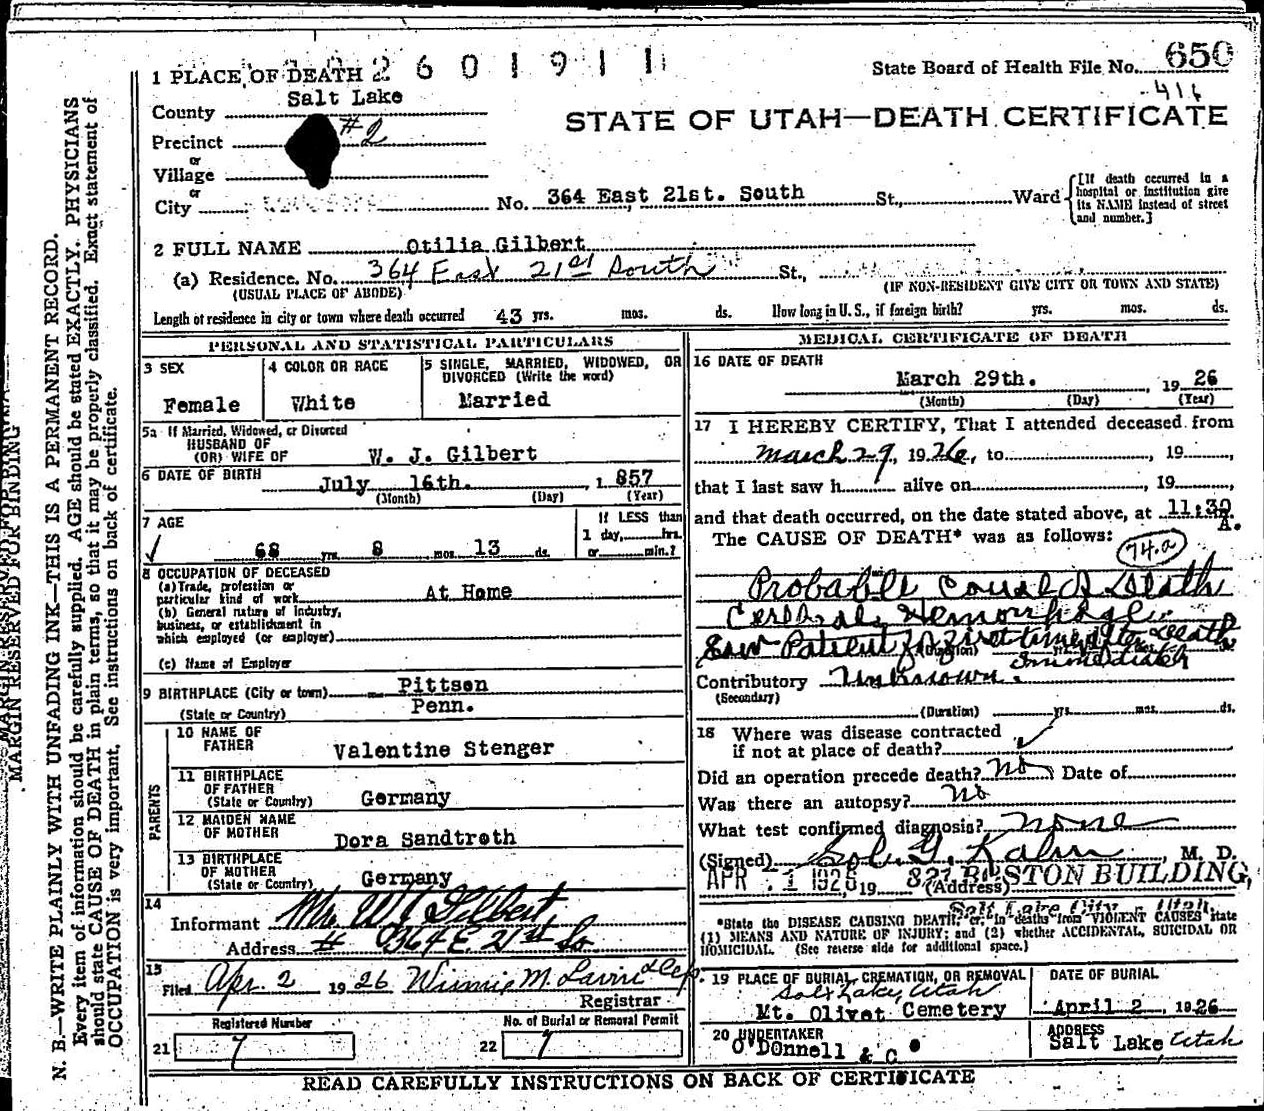 2601911
1 PLACE OF DEATH
State Board of Health File No. 650
416
County Salt Lake
STATE OF UTAH—DEATH CERTIFICATE
Precinct #2
or
Village
or
City No. 364 East 21st. South St., Ward
[If death occurred in a hospital or institution give its NAME instead of street and number.]
2 FULL NAME Otilia Gilbert
(a) Residence. No. 364 East 21st South St.,
(USUAL PLACE OF ABODE) (IF NON-RESIDENT GIVE CITY OR TOWN AND STATE)
Length of residence in city or town where death occurred 43 yrs. mos. ds. How long in U. S., if foreign birth? yrs. mos. ds.
PERSONAL AND STATISTICAL PARTICULARS
3 SEX
Female
4 COLOR OR RACE
White
5 SINGLE, MARRIED, WIDOWED, OR DIVORCED (Write the word)
Married
5a If Married, Widowed, or Divorced
HUSBAND OF
(OR) WIFE OF W. J. Gilbert
6 DATE OF BIRTH July 16th. , 1 857
(Month) (Day) (Year)
7 AGE
68 yrs. 8 mos. 13 ds.
If LESS than
1 day, hrs.
or min.?
8 OCCUPATION OF DECEASED
(a) Trade, profession or
particular kind of work At Home
(b) General nature of industry,
business, or establishment in
which employed (or employer)
(c) Name of Employer
9 BIRTHPLACE (City or town) Pittson
(State or Country) Penn.
PARENTS
10 NAME OF
FATHER Valentine Stenger
11 BIRTHPLACE
OF FATHER
(State or Country) Germany
12 MAIDEN NAME
OF MOTHER Dora Sandtroth
13 BIRTHPLACE
OF MOTHER
(State or Country) Germany
14
Informant Mr. W J Gilbert
Address # 364 E. 21st So
15
Filed Apr. 2 1926 Winnie M.
Registrar
Registered Number
21 7
No. of Burial or Removal Permit
22 7
MEDICAL CERTIFICATE OF DEATH
16 DATE OF DEATH
March 29th. , 1926
(Month) (Day) (Year)
17 I HEREBY CERTIFY, That I attended deceased from
March 29, 1926, to , 19 ,
that I last saw h alive on , 19 ,
and that death occurred, on the date stated above, at 11:30 A.
The CAUSE OF DEATH* was as follows:
74.a
Probable Cause of Death
Cerebral Hemorrhage
Saw Patient for first time after death
immediately
(Duration)
Contributory Unknown.
(Secondary)
(Duration) yrs. mos. ds.
18 Where was disease contracted
if not at place of death?
Did an operation precede death? No Date of
Was there an autopsy? No
What test confirmed diagnosis? none
(Signed) Sol. G. Kahn , M. D.
APR 1 1926, 19 (Address) BOSTON BUILDING,
Salt Lake City - Utah.
*State the DISEASE CAUSING DEATH, or in deaths from VIOLENT CAUSES state
(1) MEANS AND NATURE OF INJURY; and (2) whether ACCIDENTAL, SUICIDAL OR
HOMICIDAL. (See reverse side for additional space.)
19 PLACE OF BURIAL, CREMATION, OR REMOVAL
Salt Lake, Utah
Mt. Olivet Cemetery
DATE OF BURIAL
April 2 , 1926
20 UNDERTAKER
O'Donnell & Co
ADDRESS
Salt Lake, Utah
READ CAREFULLY INSTRUCTIONS ON BACK OF CERTIFICATE
MARGIN RESERVED FOR BINDING
N. B.—WRITE PLAINLY WITH UNFADING INK—THIS IS A PERMANENT RECORD.
Every item of information should be carefully supplied. AGE should be stated EXACTLY. PHYSICIANS
should state CAUSE OF DEATH in plain terms, so that it may be properly classified. Exact statement of
OCCUPATION is very important. See instructions on back of certificate.